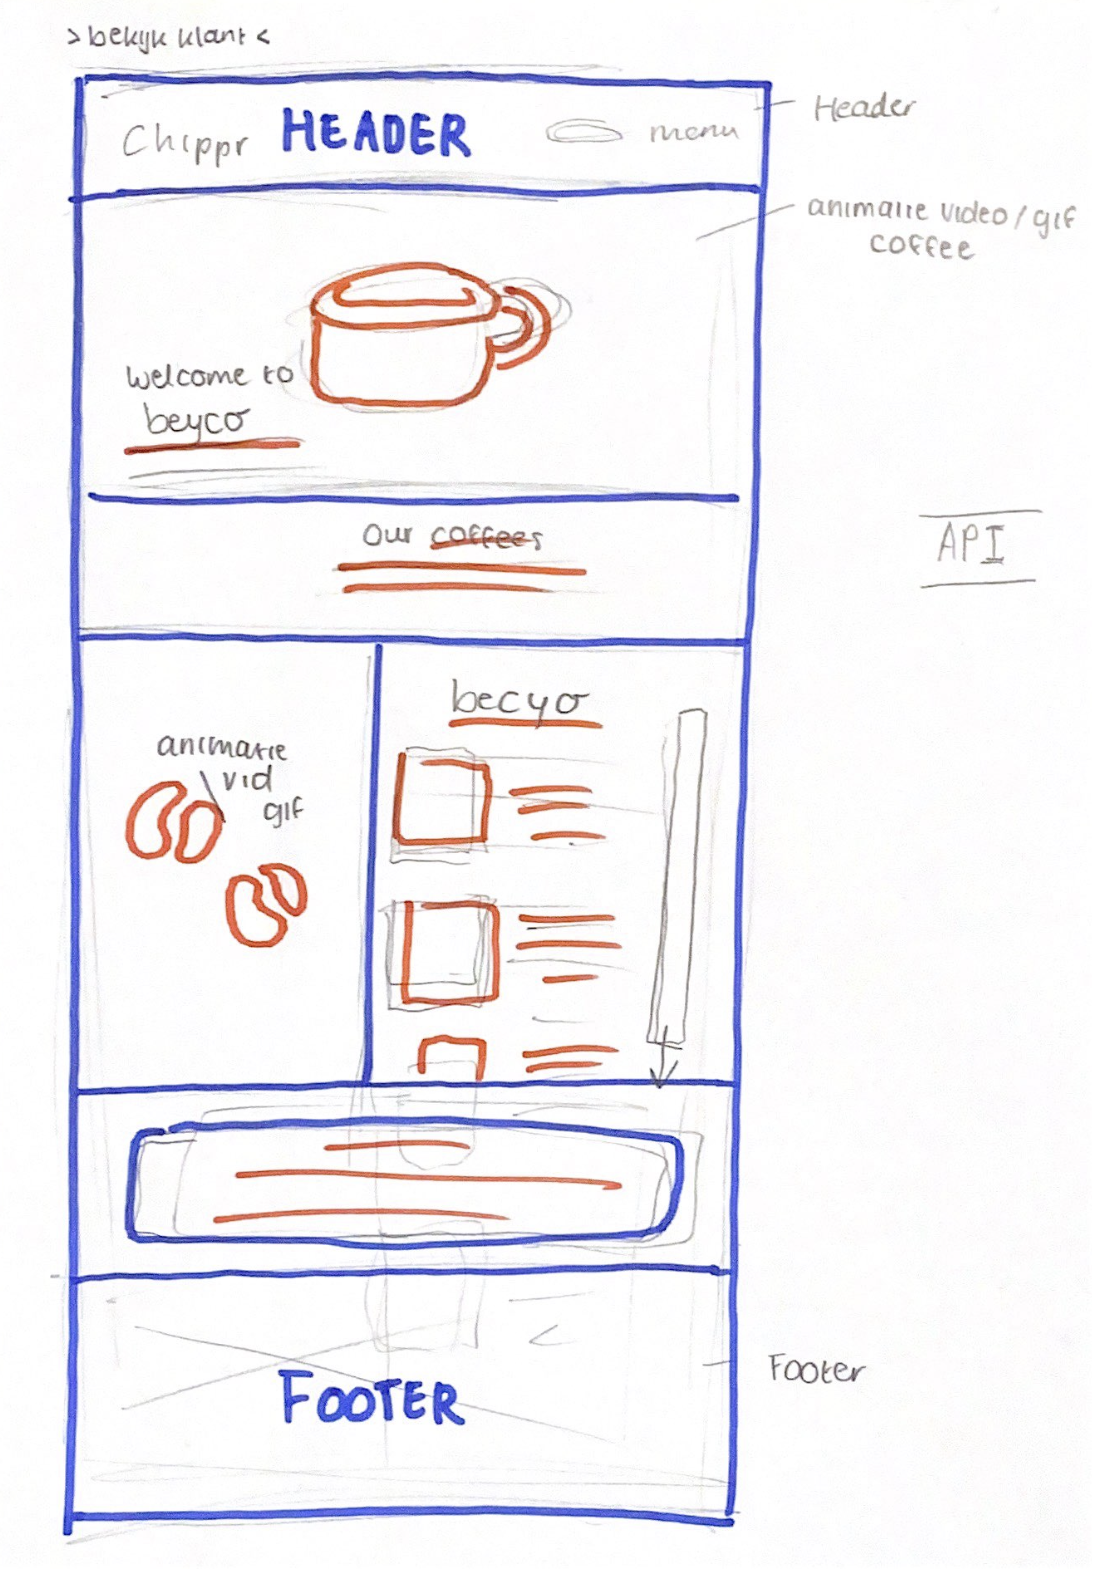 > bekijk klant <
Chippr HEADER menu
Header
animatie video / gif
coffee
welcome to
beyco
Our coffees
API
becyo
animatie
vid
gif
FOOTER
Footer